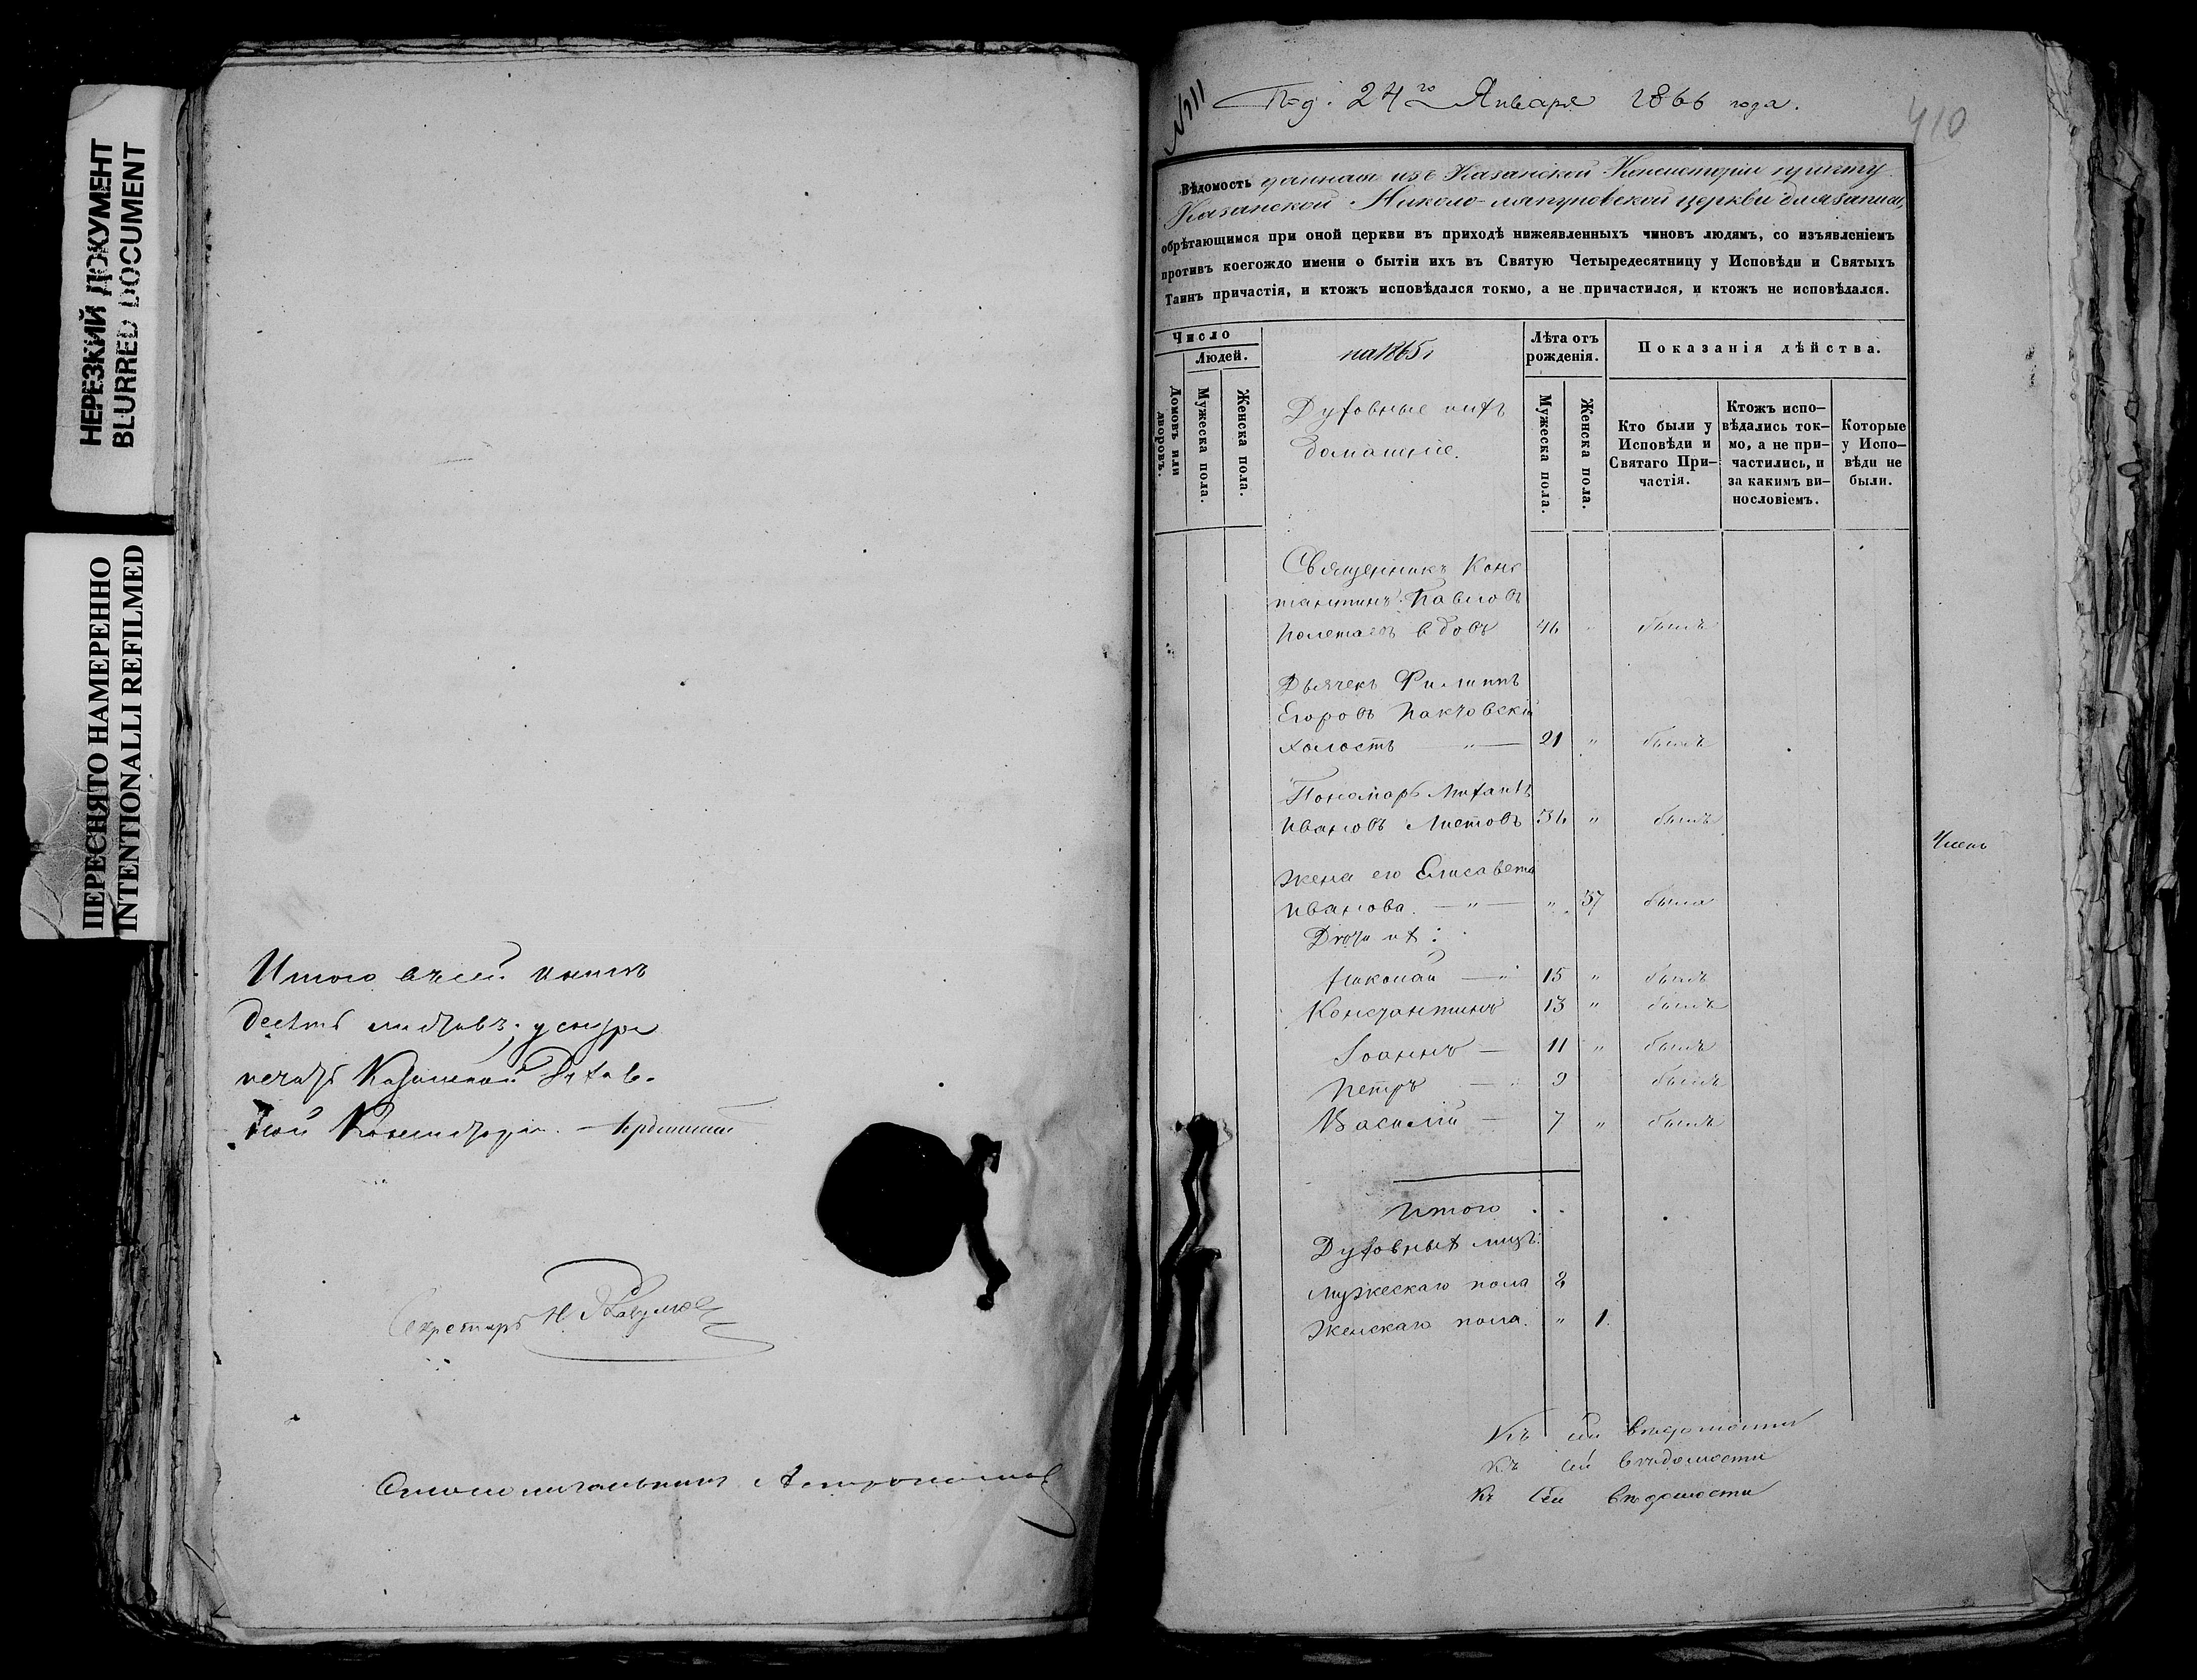 НЕРЕЗКИЙ ДОКУМЕНТ
BLURRED DOCUMENT
ПЕРЕСНЯТО НАМЕРЕННО
INTENTIONALLI REFILMED
Итого въ сей книгѣ
десять листовъ; у сего
печать Казанской Духов-
ной Консисторіи.
Секретарь Н
Столоначальникъ
№ 11
24го Января 1866 года.
410
Вѣдомость данная изъ Казанской Консисторіи причту
Казанской Николо-ляпуновской церкви для записи,
обрѣтающимся при оной церкви въ приходѣ нижеявленныхъ чиновъ людямъ, со изъявленіемъ
противъ коегождо имени о бытіи ихъ въ Святую Четыредесятницу у Исповѣди и Святыхъ
Таинъ причастія, и ктожъ исповѣдался токмо, а не причастился, и ктожъ не исповѣдался.
Число
Людей.
Домовъ или дворовъ.
Мужеска пола.
Женска пола.
на 1865 г
Духовные ихъ
домашніе.
Лѣта отъ рожденія.
Мужеска пола.
Женска пола.
Показанія дѣйства.
Кто были у Исповѣди и Святаго При-частія.
Ктожъ испо-вѣдались ток-мо, а не при-частились, и за какимъ ви-нословіемъ.
Которые у Испо-вѣди не были.
Священникъ Конс
тантинъ Павловъ
Полетаевъ вдовъ 46 " былъ
Дьячекъ Филиппъ
Егоровъ
холостъ — " — 21 " былъ
Пономарь Михаилъ
Ивановъ Листовъ 36 " былъ
Жена его Елисавета
Иванова. — " — " 37 была
Дѣти их:
Николай — " 15 " былъ
Константинъ 13 " былъ
Іоаннъ — 11 " былъ
Петръ — 9 былъ
Василій — 7 " былъ
Итого
Духовныхъ лицъ:
Мужескаго пола 8
Женскаго пола. " 1.
Членъ
Къ сей вѣдомости
Къ сей вѣдомости
Къ сей вѣдомости